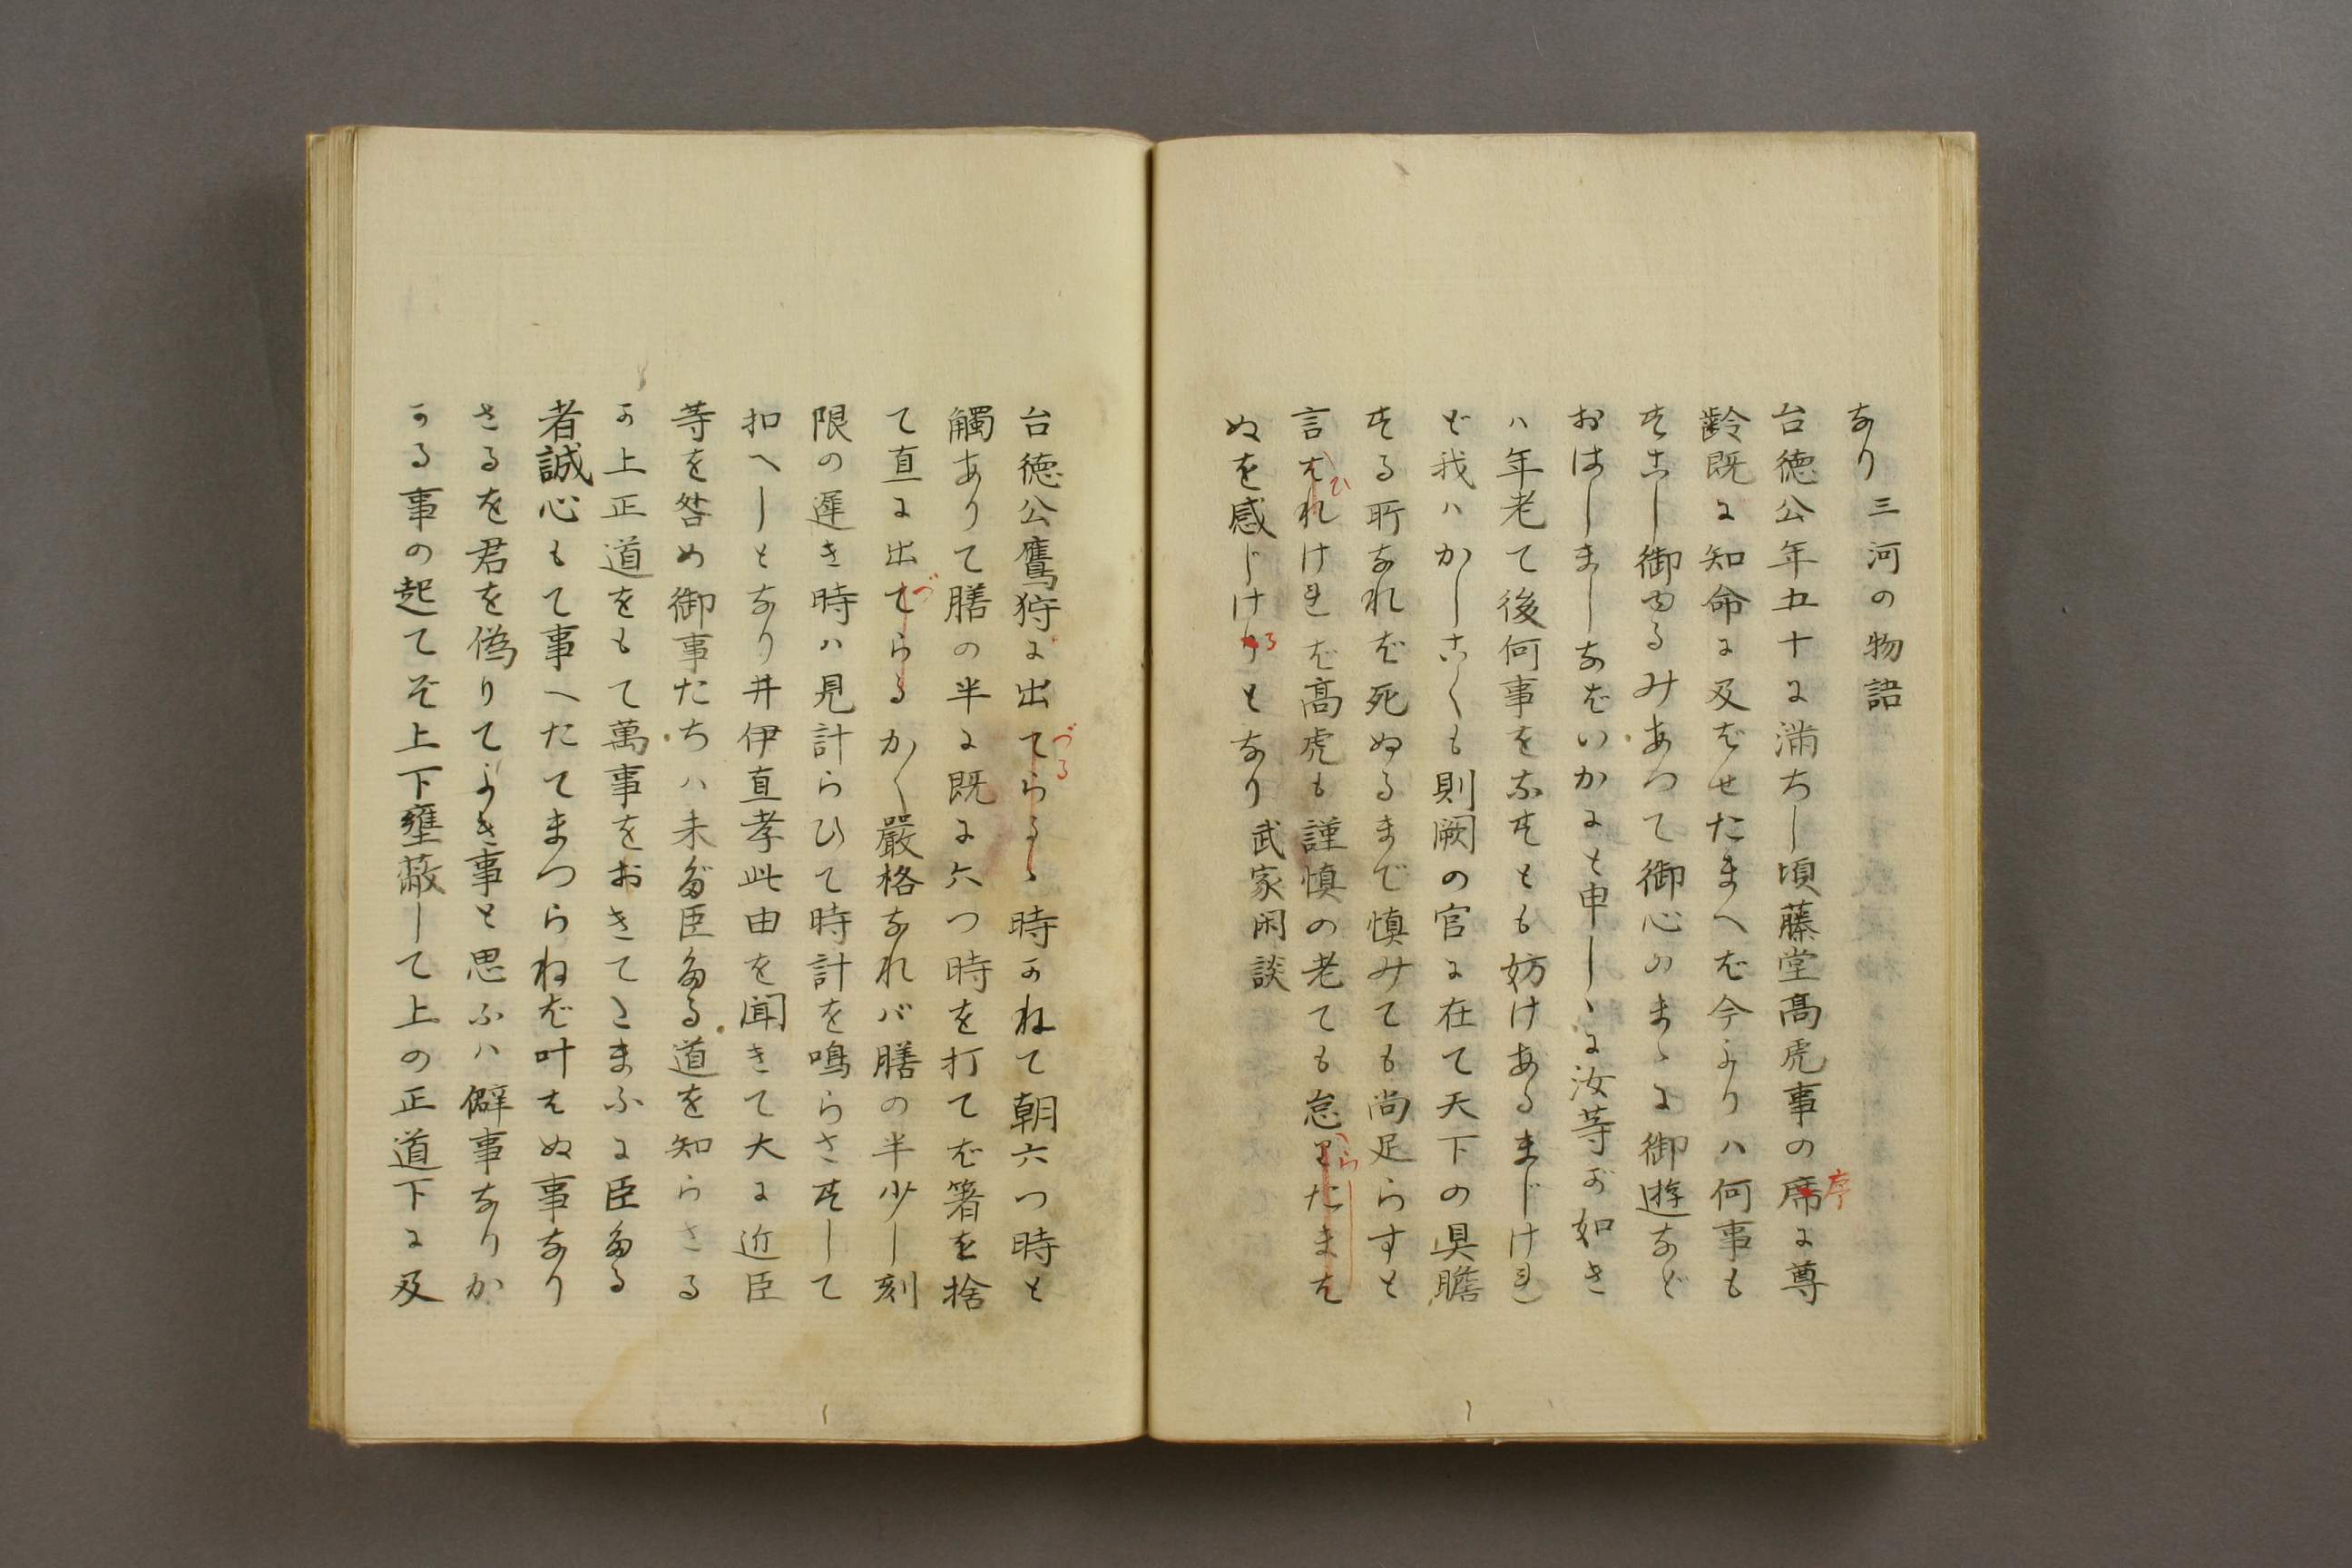 なり 三河の物語
台徳公年五十に満ちし頃藤堂高虎事の席に尊
齢既に知命に及ばせたまへば今よりハ何事も
すこし御ゆるみあつて御心のまゝに御遊など
おはしましなばいかにと申しゝに汝等が如き
ハ年老て後何事をなすとも妨けあるまじけれ
ど我ハかしこくも則闕の官に在て天下の具瞻
する所なれば死ぬるまで慎みても尚足らすと
言はれければ高虎も謹慎の老ても怠りたまは
ぬを感じけりとなり 武家閑談
台徳公鷹狩に出てらるゝ時かねて朝六つ時と
觸ありて膳の半に既に六つ時を打てば箸を捨
て直に出てらるかく嚴格なれバ膳の半少し刻
限の遅き時ハ見計らひて時計を鳴らさすして
扣へしとなり井伊直孝此由を聞きて大に近臣
等を咎め御事たちハ未だ臣たる道を知らさる
か上正道をもて萬事をおきてたまふに臣たる
者誠心もて事へたてまつらねば叶はぬ事なり
さるを君を偽りてよき事と思ふハ僻事なりか
かる事の起てぞ上下壅蔽して上の正道下に及
序
ひ
ら
る
づる
づ